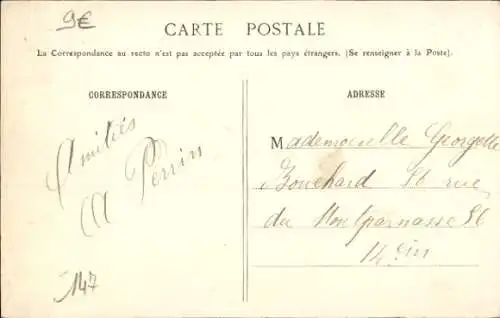 9€
CARTE POSTALE
La Correspondance au recto n'est pas acceptée par tous les pays étrangers. (Se renseigner à la Poste).
CORRESPONDANCE
ADRESSE
Amitiés
A Perrin
Mademoiselle Georgette
Bouchard 56 rue
du Montparnasse 56
14 ein
147